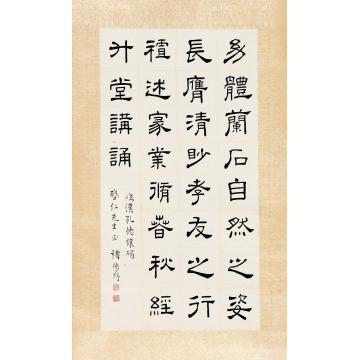 幼體蘭石自然之姿
長膺清眇孝友之行
禋述家業脩春秋經
升堂講誦
臨漢孔德讓碣
啓仁先生正 褚德彝